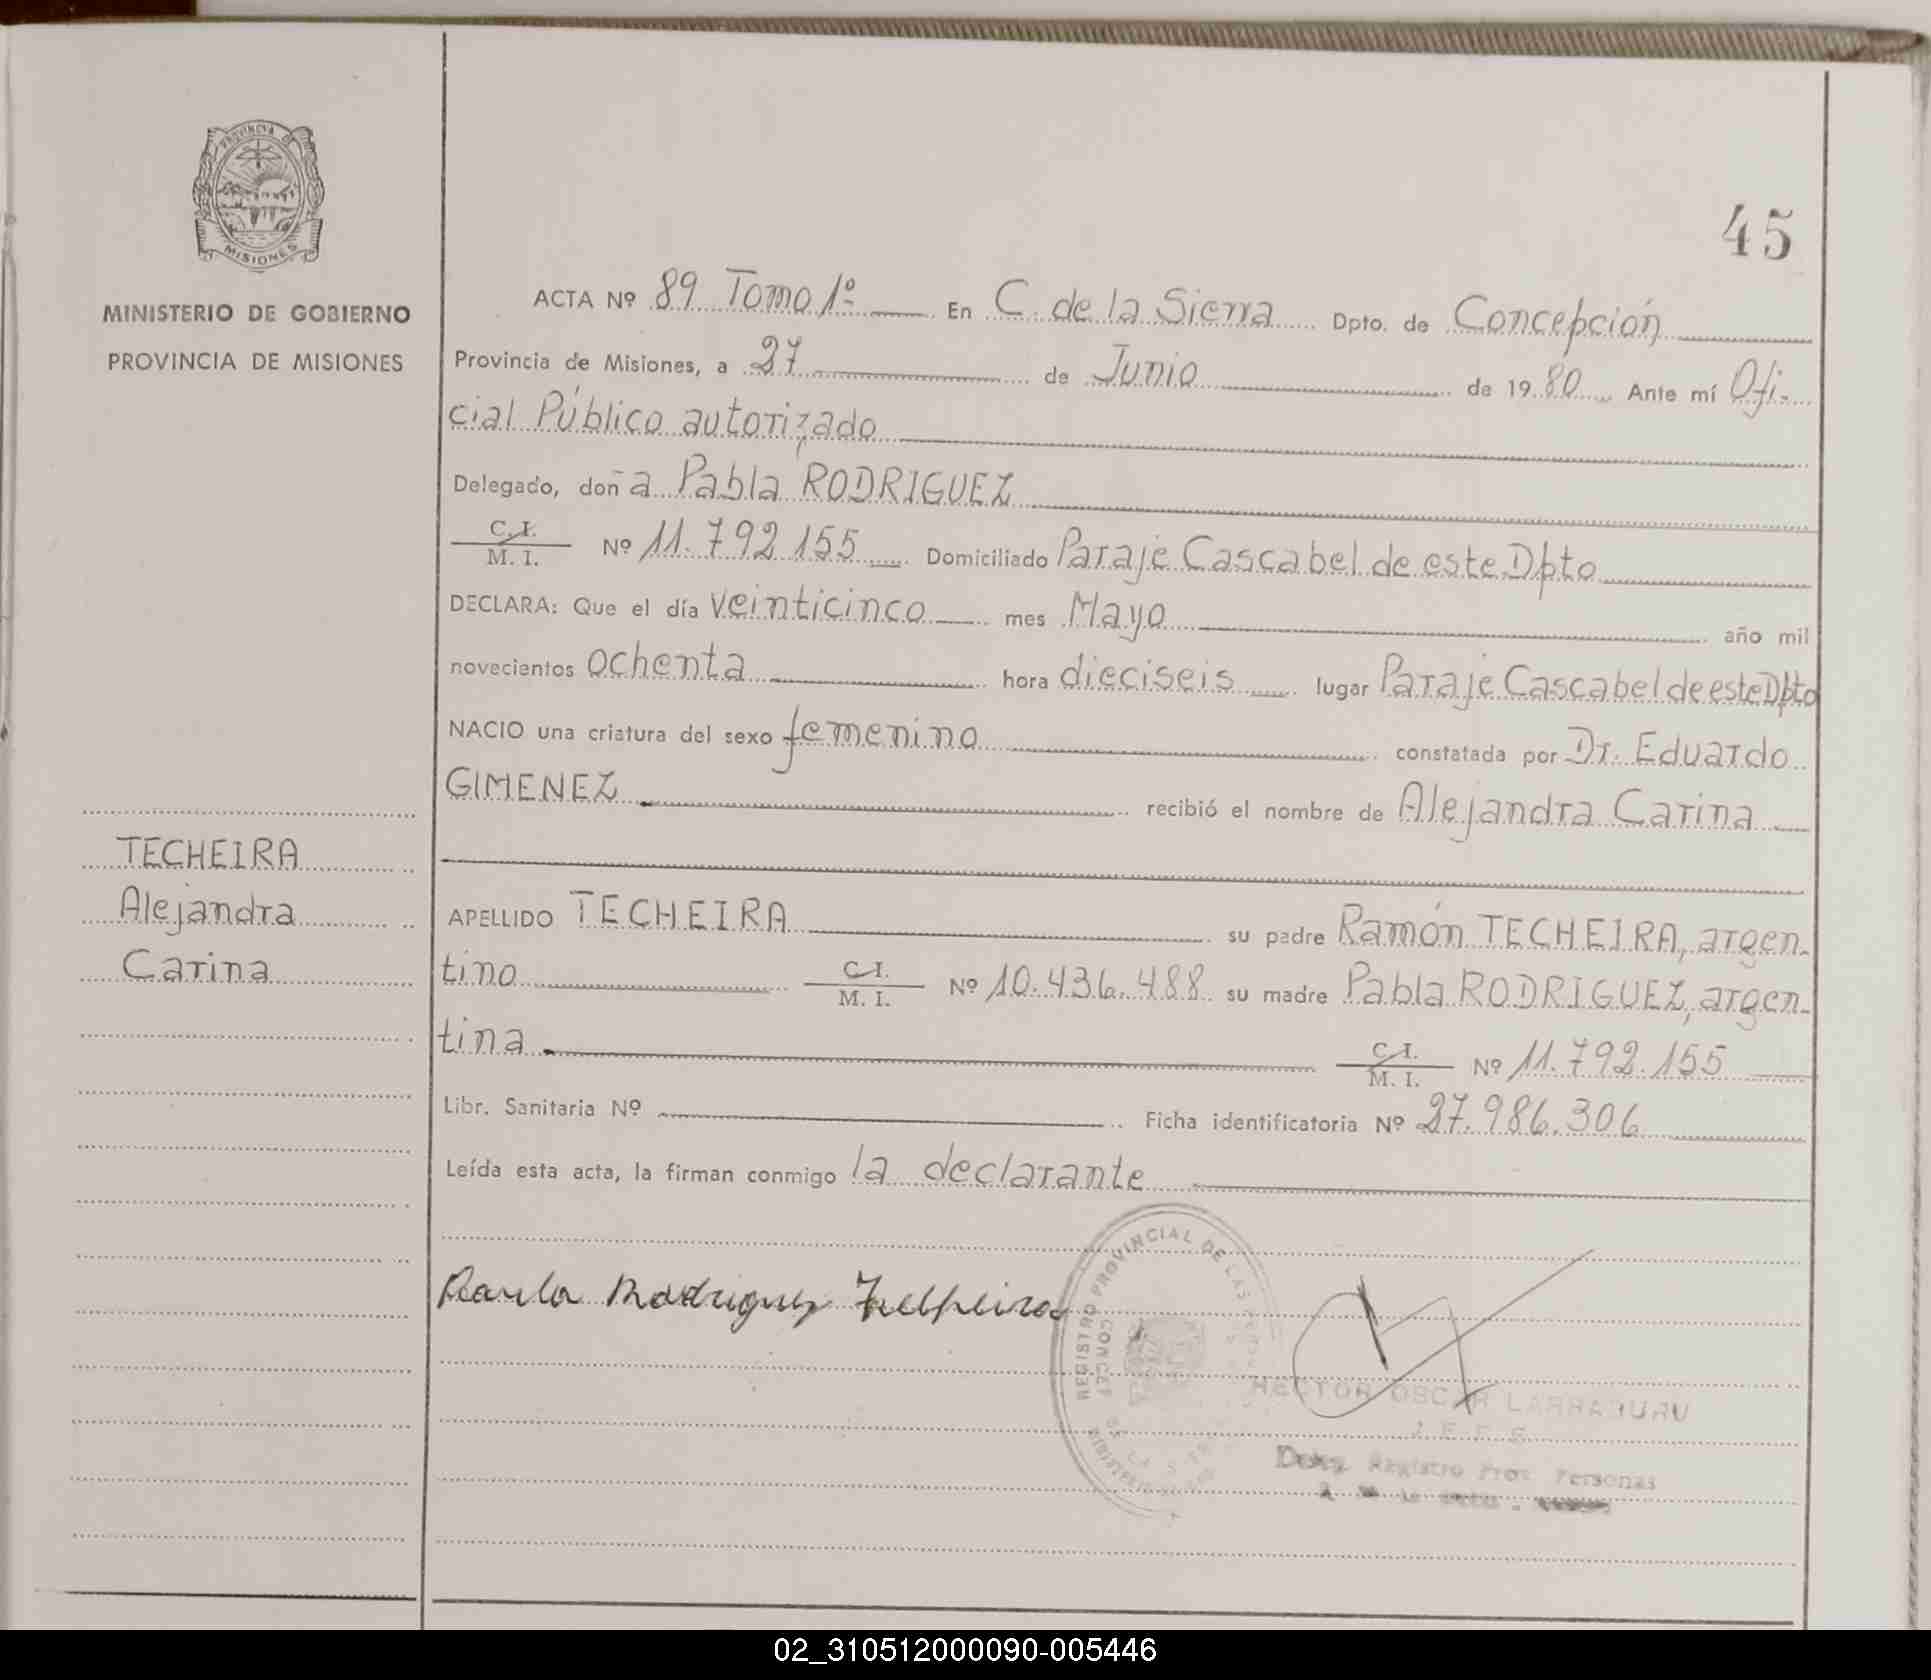 PROVINCIA DE
MISIONES
MINISTERIO DE GOBIERNO
PROVINCIA DE MISIONES
TECHEIRA
Alejandra
Carina
45
ACTA Nº 89 Tomo 1º En C. de la Sierra Dpto. de Concepción
Provincia de Misiones, a 27 de Junio de 1980 Ante mí Ofi-
cial Público autorizado
Delegado, doña Pabla RODRIGUEZ
C. I.
M. I. Nº 11.792.155 Domiciliado Paraje Cascabel de este Dpto
DECLARA: Que el día veinticinco mes Mayo año mil
novecientos ochenta hora dieciseis lugar Paraje Cascabel de este Dpto
NACIO una criatura del sexo femenino constatada por Dr. Eduardo
GIMENEZ recibió el nombre de Alejandra Carina
APELLIDO TECHEIRA su padre Ramón TECHEIRA, argen-
tino C. I. M. I. Nº 10.436.488 su madre Pabla RODRIGUEZ, argen-
tina C. I. M. I. Nº 11.792.155
Libr. Sanitaria Nº Ficha identificatoria Nº 27.986.306
Leída esta acta, la firman conmigo la declarante
REGISTRO PROVINCIAL DE LAS
Rodriguez
HECTOR OSCAR LARRABURU
J E F E
Registro Prov. Personas
02_310512000090-005446